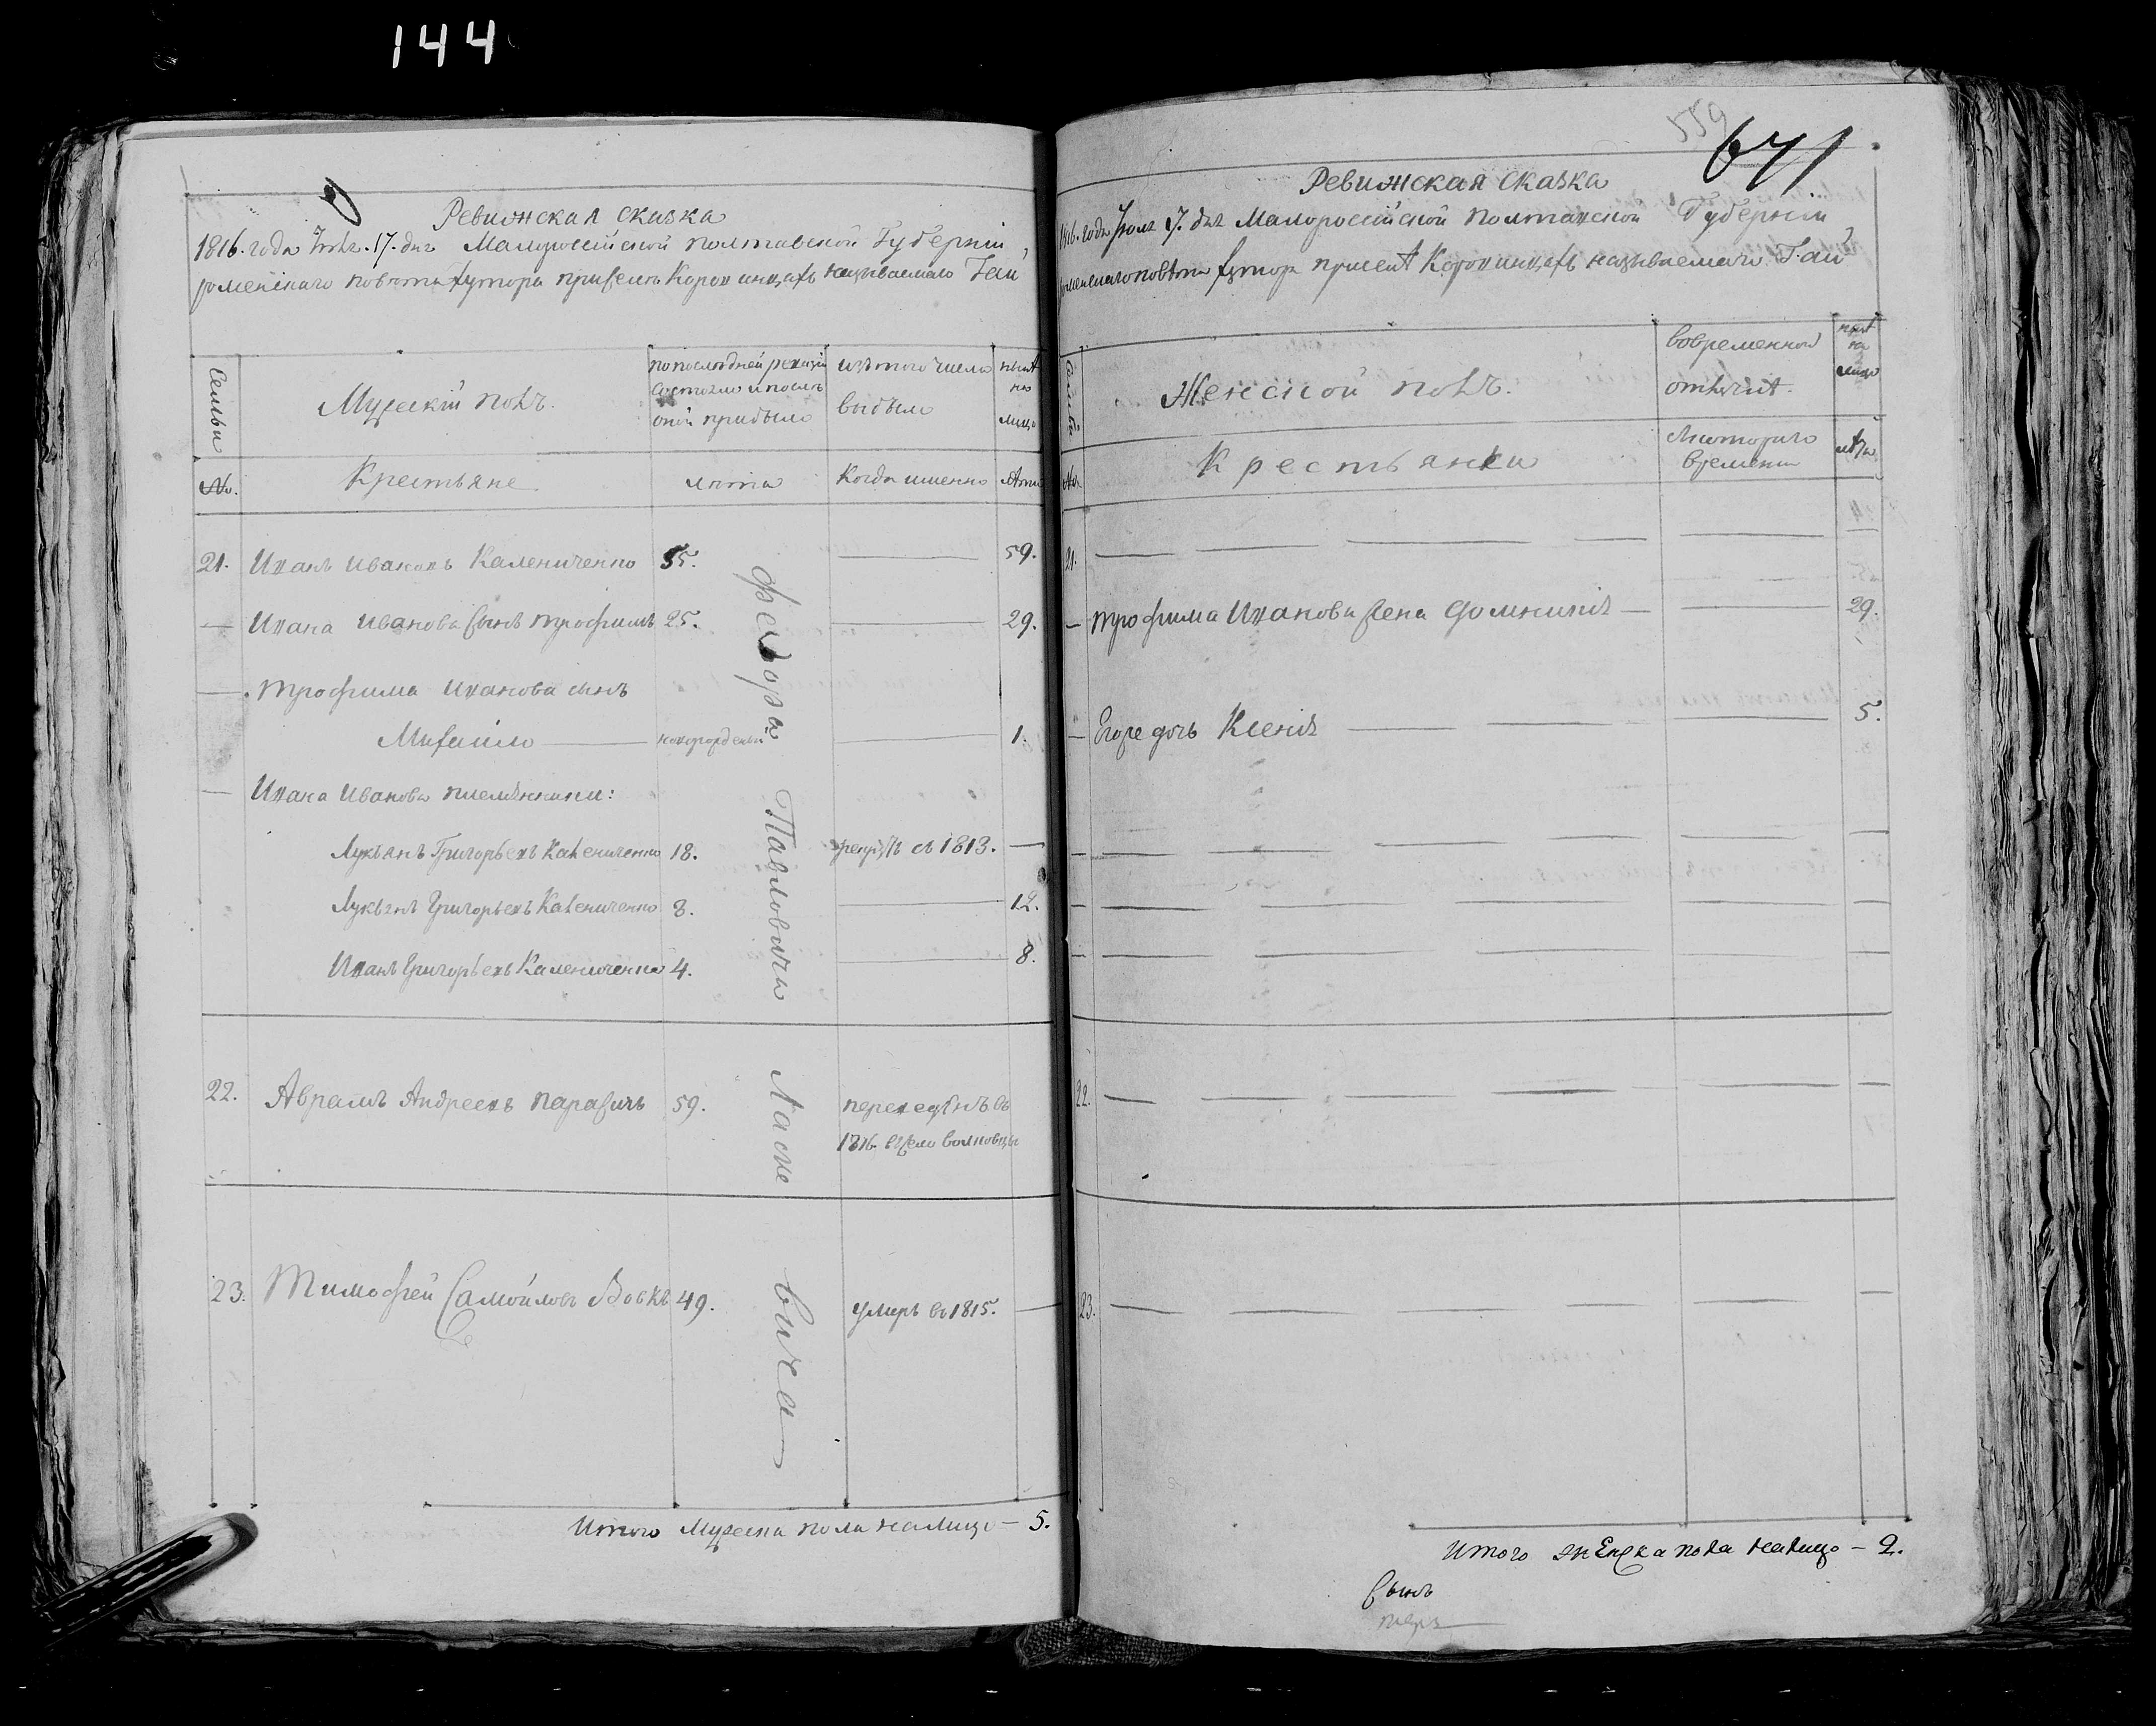 144
Ревижская сказка
1816. года Июля. 17. дня Малороссійской полтавской Губерніи,
роменскаго повѣта хутора приселѣ Коровинцахъ называемаго Гай
Семьи
Мужескій полъ.
по последней ревизіи
состояло и послѣ
оной прибыло
изъ того числа
выбыло
нынѣ
на
лицо
№.
Крестьяне
лѣта
Когда именно
лѣта
21. Иванъ Ивановъ Калениченко 55. — 59.
— Ивана Иванова сынъ трофимъ 25. — 29.
— трофима Иванова сынъ
Михайло — новорожденый — 1.
— Ивана Иванова племянники:
Лукьянъ Григорьевъ Калениченко 18. рекрутъ съ 1813. —
Лукьянъ Григорьевъ Калениченко 8. — 12.
Иванъ Григорьевъ Калениченко 4. — 8.
22. Аврамъ Андреевъ 59. переведѣнъ въ
1816. въ село волковцы
23. Тимофей Самойловъ Вовкъ 49. умеръ въ 1815. —
Федора Павловича Ласке
вича
Итого Мужеска пола налицо — 5.
559
671
Ревижская сказка
1816. года Июля 17. дня Малороссійской полтавской Губерніи
роменскаго повѣта хутора приселѣ Коровинцахъ называемаго Гай
Семьи
Женской полъ.
вовременной
отлучкѣ.
нынѣ
на
лицо
№
Крестьянки
съкоторого
времени
лѣта
21. — — — — — —
— трофима Иванова жена Домникія — — 29.
— Егоже дочь Ксенія — — — 5.
— — — — — —
— — — — — —
— — — — — —
22. — — — — — —
23. — — — — — —
Итого женска пола налицо — 2.
Сынъ